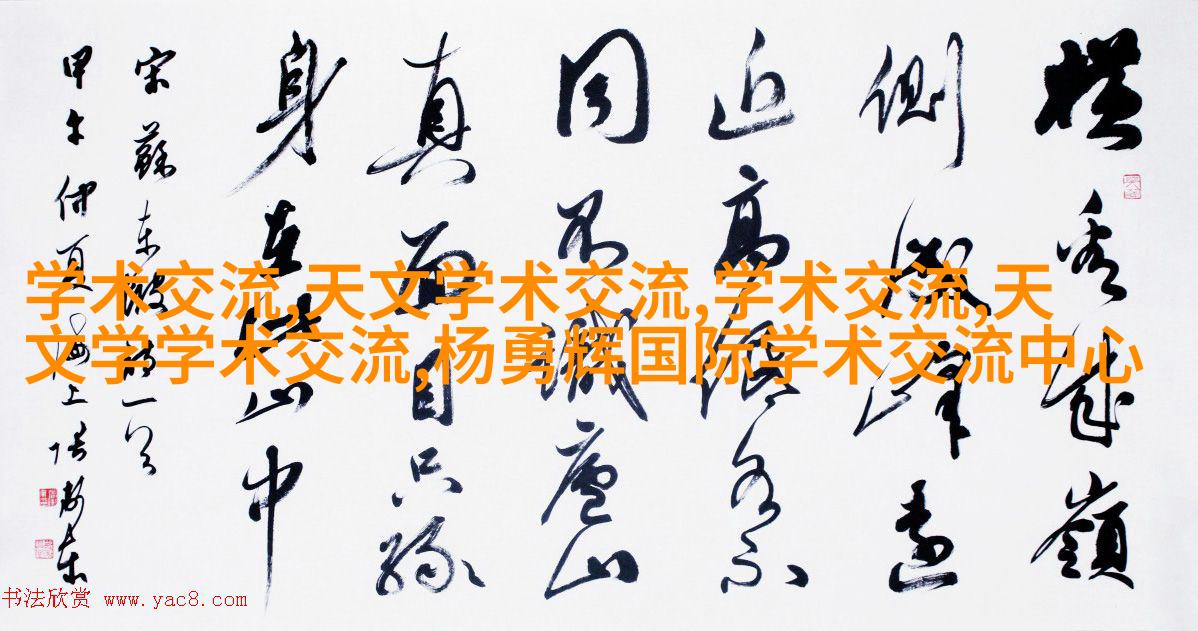 横看成嶺
側成峰遠
近高低各不
同不識廬山
真面目只緣
身在此山中
宋蘇東坡詩一首
甲午仲夏海上
学术交流,天文学术交流,学术交流,天
文学学术交流,杨勇辉国际学术交流中心
书法欣赏 www.yac8.com